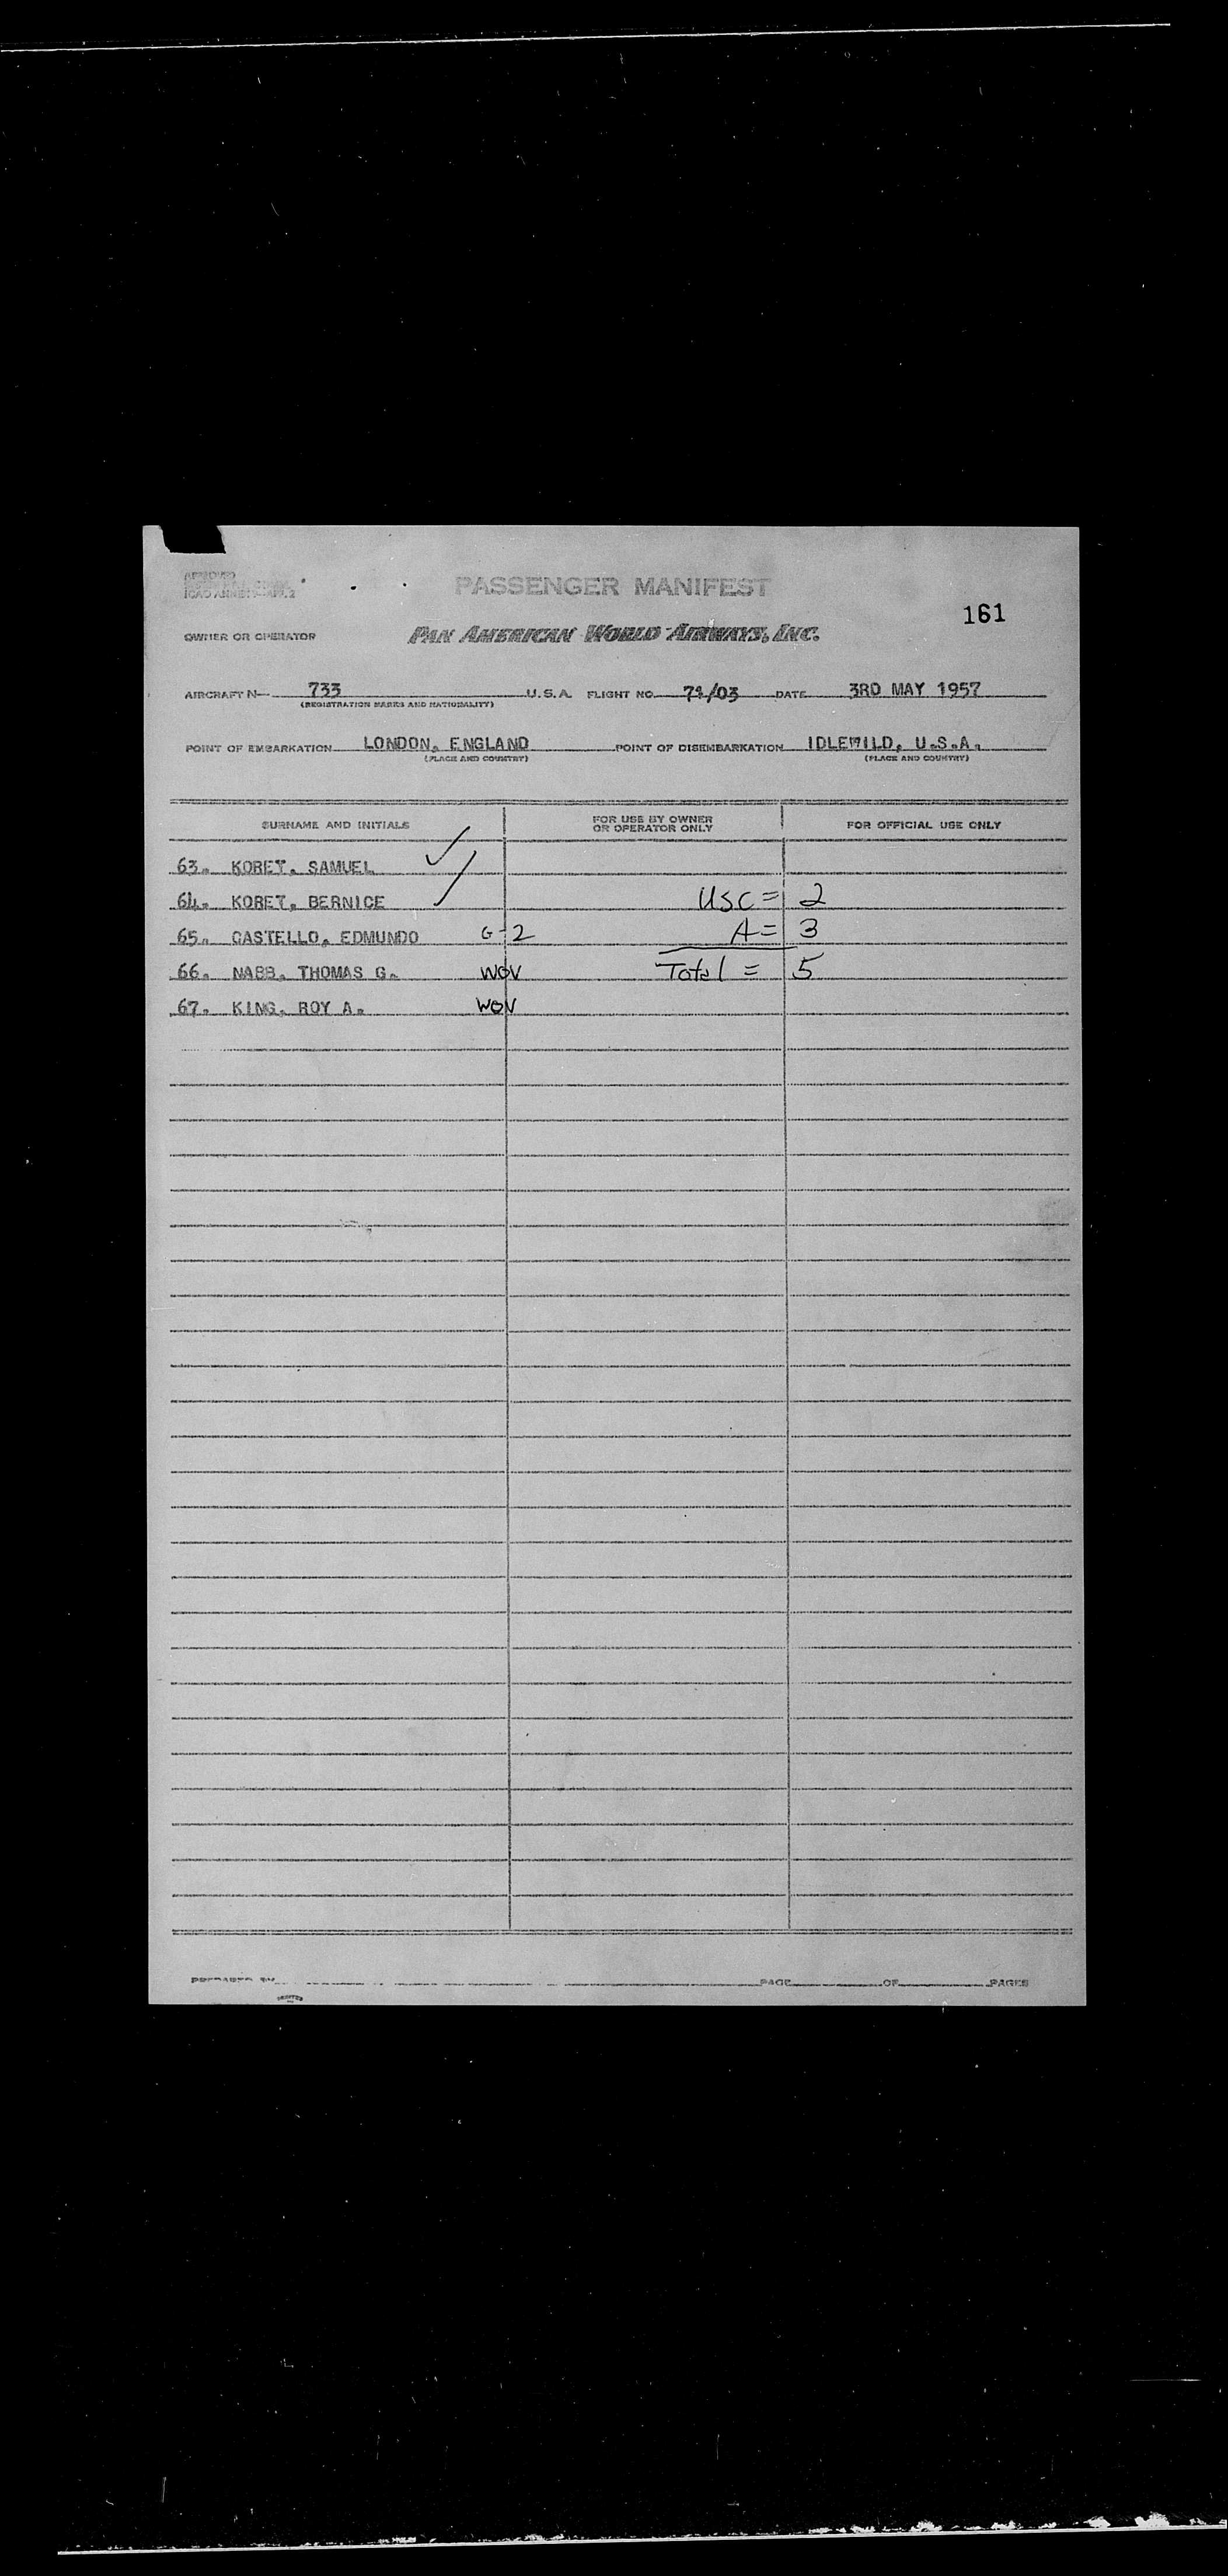 APPROVED
ICAO ANNEX 9—APP. 2
PASSENGER MANIFEST
161
OWNER OR OPERATOR PAN AMERICAN WORLD AIRWAYS, INC.
AIRCRAFT N— 733 U.S.A. FLIGHT NO. 71/03 DATE 3RD MAY 1957
(REGISTRATION MARKS AND NATIONALITY)
POINT OF EMBARKATION LONDON, ENGLAND POINT OF DISEMBARKATION IDLEWILD, U.S.A.
(PLACE AND COUNTRY) (PLACE AND COUNTRY)
SURNAME AND INITIALS FOR USE BY OWNER OR OPERATOR ONLY FOR OFFICIAL USE ONLY
63. KORET, SAMUEL
64. KORET, BERNICE USC = 2
65. CASTELLO, EDMUNDO G-2 A = 3
66. NABB, THOMAS G. WOV Total = 5
67. KING, ROY A. WOV
PREPARED BY PAGE OF PAGES